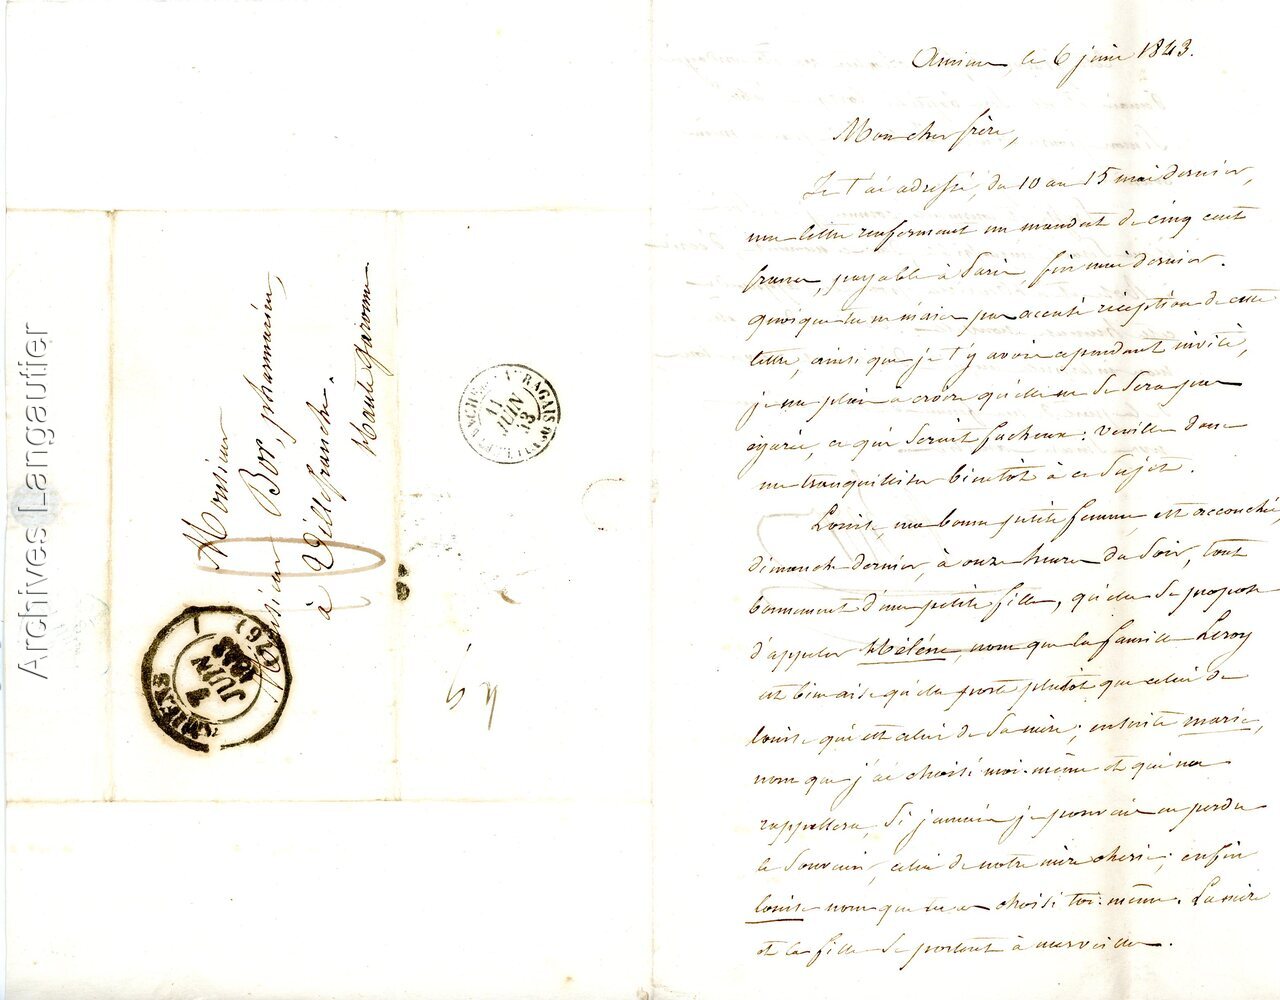 Archives Langautier
Monsieur
Monsieur Bor, pharmacien,
à Villefranche.
Haute Garonne
AMIENS (76)
7
JUIN
1843
VILLEFRANCHE-DE-LAURAGAIS
11
JUIN
43
Amiens, le 6 juin 1843.
Mon cher frère,
Je t'ai adressé, du 10 au 15 mai dernier,
une lettre renfermant un mandat de cinq cent
francs, payable à Paris fin mai dernier.
quoique tu ne m'aies pas accusé réception de cette
lettre, ainsi que je t'y avais cependant invité,
je me plais à croire qu'elle ne se sera pas
égarée, ce qui serait facheux : veuille donc
me tranquilliser bientôt à ce sujet.
Louise, ma bonne petite femme, est accouchée,
dimanche dernier, à onze heures du soir, tout
bonnement d'une petite fille, qu'elle se propose
d'appeler Hélène, nom que la famille Leroy
est bien aise qu'elle porte plutôt que celui de
louise qui est celui de sa mère ; ensuite marie,
nom que j'ai choisi moi-même et qui me
rappellera, si jamais je pouvais en perdre
le souvenir, celui de notre mère chérie ; enfin
louise nom que tu as choisi toi-même. La mère
et la fille se portent à merveille.